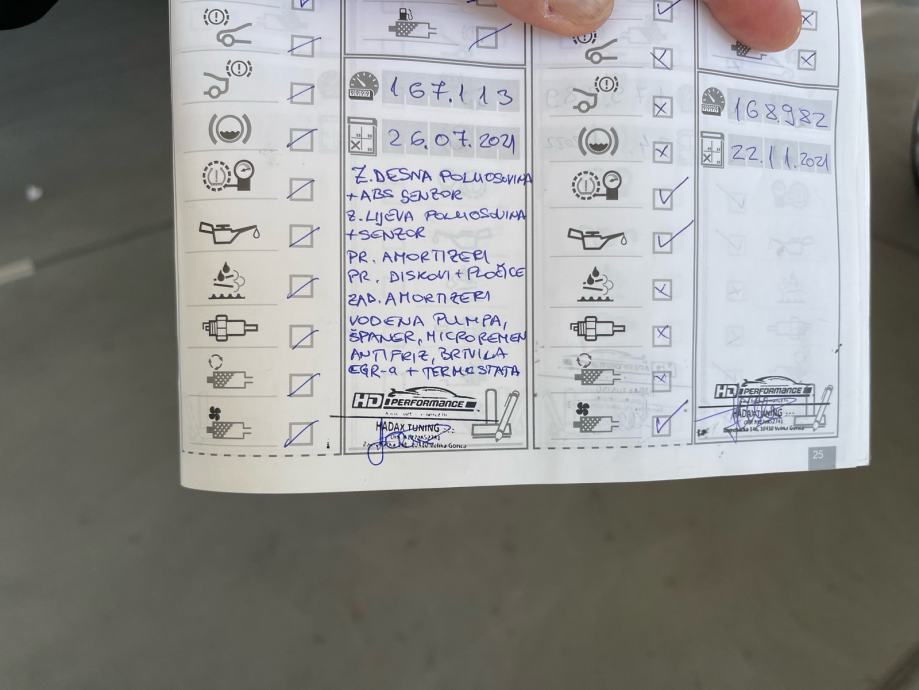 167.113
26.07.2021
Z.DESNA POLUOSOVINA
+ABS SENZOR
Z.LIJEVA POLUOSOVINA
+SENZOR
PR. AMORTIZERI
PR. DISKOVI+PLOČICE
ZAD.AMORTIZERI
VODENA PUMPA,
ŠPANER, MICROREMEN
ANTIFRIZ, BRTVILA
EGR-a + TERMOSTATA
HD PERFORMANCE
HADAX TUNING
10410 Velika Gorica
168982
22.11.2021
HD PERFORMANCE
HADAX TUNING
10410 Velika Gorica
25